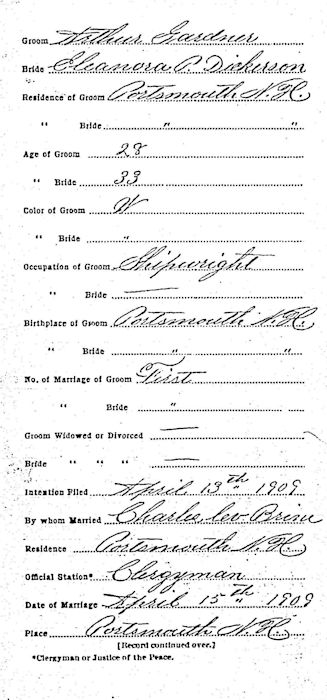 Groom Arthur Gardner
Bride Eleanora P. Dickerson
Residence of Groom Portsmouth N.H.
" Bride " "
Age of Groom 28
" Bride 33
Color of Groom W
" Bride "
Occupation of Groom Shipwright
" Bride —
Birthplace of Groom Portsmouth N.H.
" Bride " "
No. of Marriage of Groom First
" Bride "
Groom Widowed or Divorced —
Bride " " " —
Intention Filed April 13th 1909
By whom Married Charles leV. Brine
Residence Portsmouth N.H.
Official Station* Clergyman
Date of Marriage April 15th 1909
Place Portsmouth N.H.
[Record continued over.]
*Clergyman or Justice of the Peace.